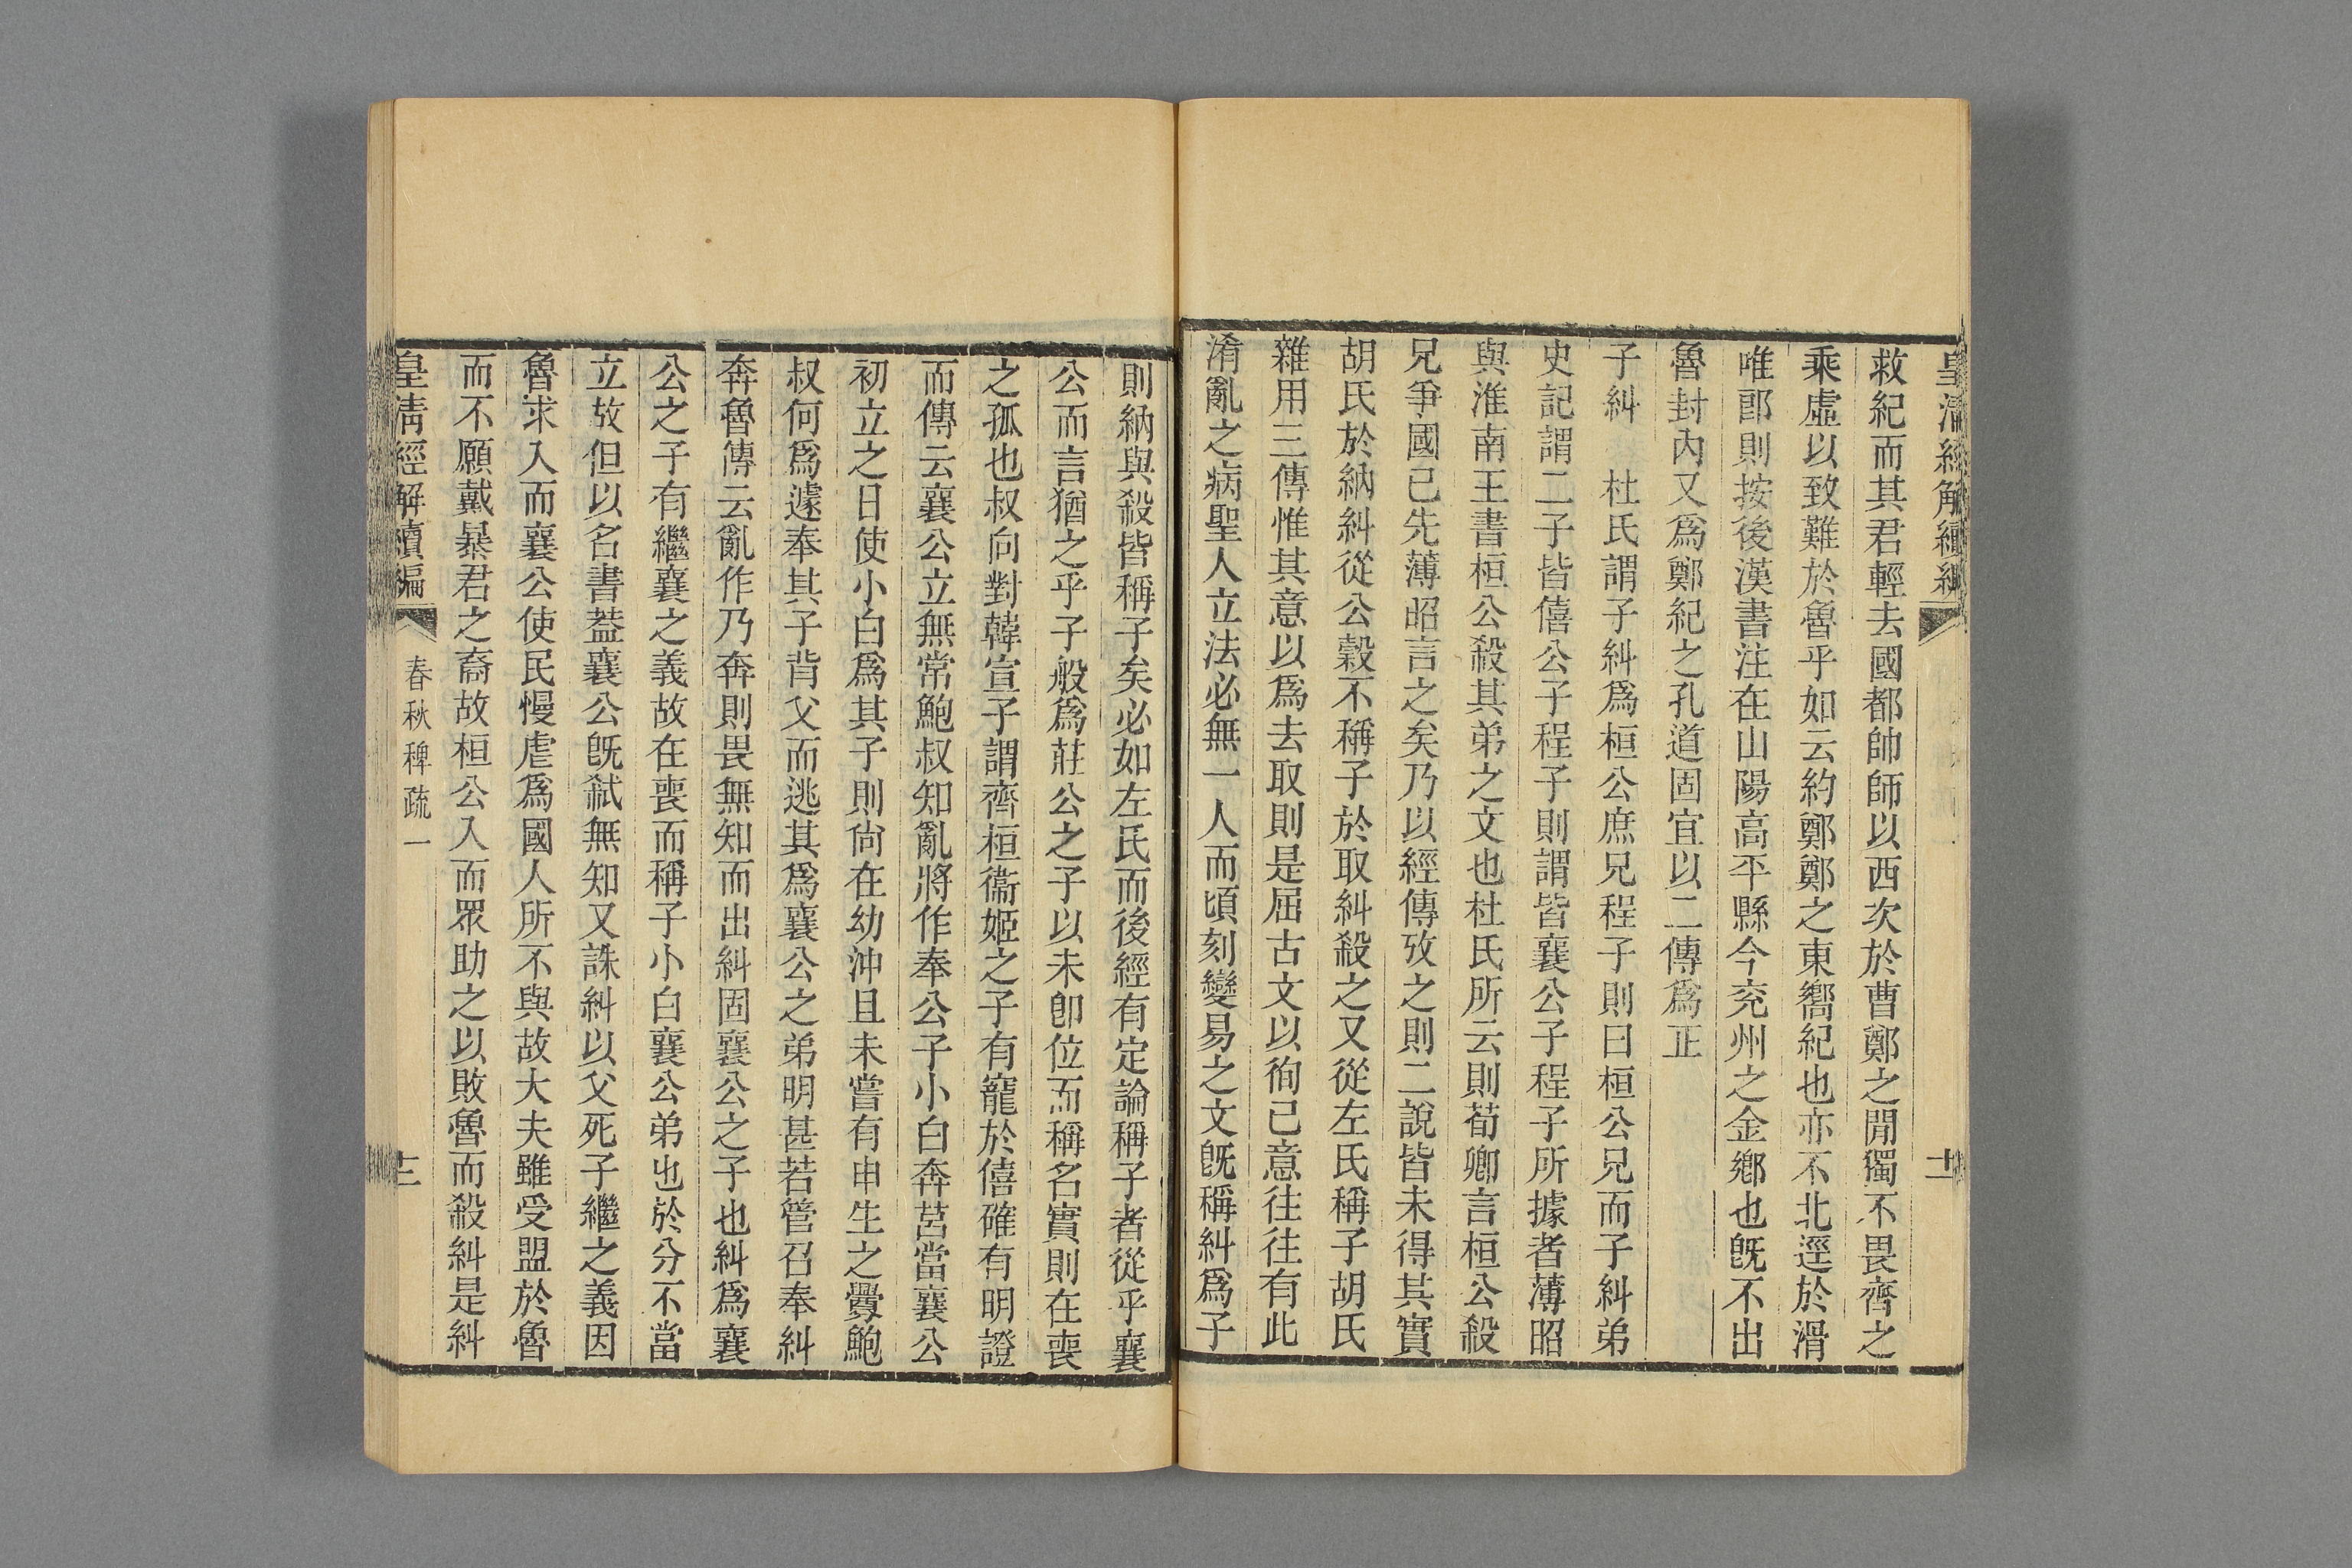 皇清經解續編
十一
救紀而其君輕去國都帥師以西次於曹鄭之閒獨不畏齊之
乘虛以致難於魯乎如云約鄭鄭之東嚮紀也亦不北逕於滑
唯郎則按後漢書注在山陽高平縣今兖州之金鄉也旣不出
魯封內又爲鄭紀之孔道固宜以二傳爲正
子糾　杜氏謂子糾爲桓公庶兄程子則曰桓公兄而子糾弟
史記謂二子皆僖公子程子則謂皆襄公子程子所據者薄昭
與淮南王書桓公殺其弟之文也杜氏所云則荀卿言桓公殺
兄爭國己先薄昭言之矣乃以經傳攷之則二說皆未得其實
胡氏於納糾從公穀不稱子於取糾殺之又從左氏稱子胡氏
雜用三傳惟其意以爲去取則是屈古文以徇己意往往有此
淆亂之病聖人立法必無一人而頃刻變易之文旣稱糾爲子
則納與殺皆稱子矣必如左氏而後經有定論稱子者從乎襄
公而言猶之乎子般爲莊公之子以未卽位而稱名實則在喪
之孤也叔向對韓宣子謂齊桓衞姬之子有寵於僖確有明證
而傳云襄公立無常鮑叔知亂將作奉公子小白奔莒當襄公
初立之日使小白爲其子則尙在幼沖且未嘗有申生之釁鮑
叔何爲遽奉其子背父而逃其爲襄公之弟明甚若管召奉糾
奔魯傳云亂作乃奔則畏無知而出糾固襄公之子也糾爲襄
公之子有繼襄之義故在喪而稱子小白襄公弟也於分不當
立故但以名書葢襄公旣弒無知又誅糾以父死子繼之義因
魯求入而襄公使民慢虐爲國人所不與故大夫雖受盟於魯
而不願戴暴君之裔故桓公入而眾助之以敗魯而殺糾是糾
皇清經解續編
春秋稗疏一
十二